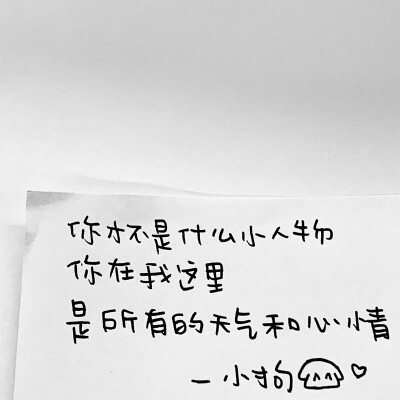 你才不是什么小人物
你在我这里
是所有的天气和心情
一小狗